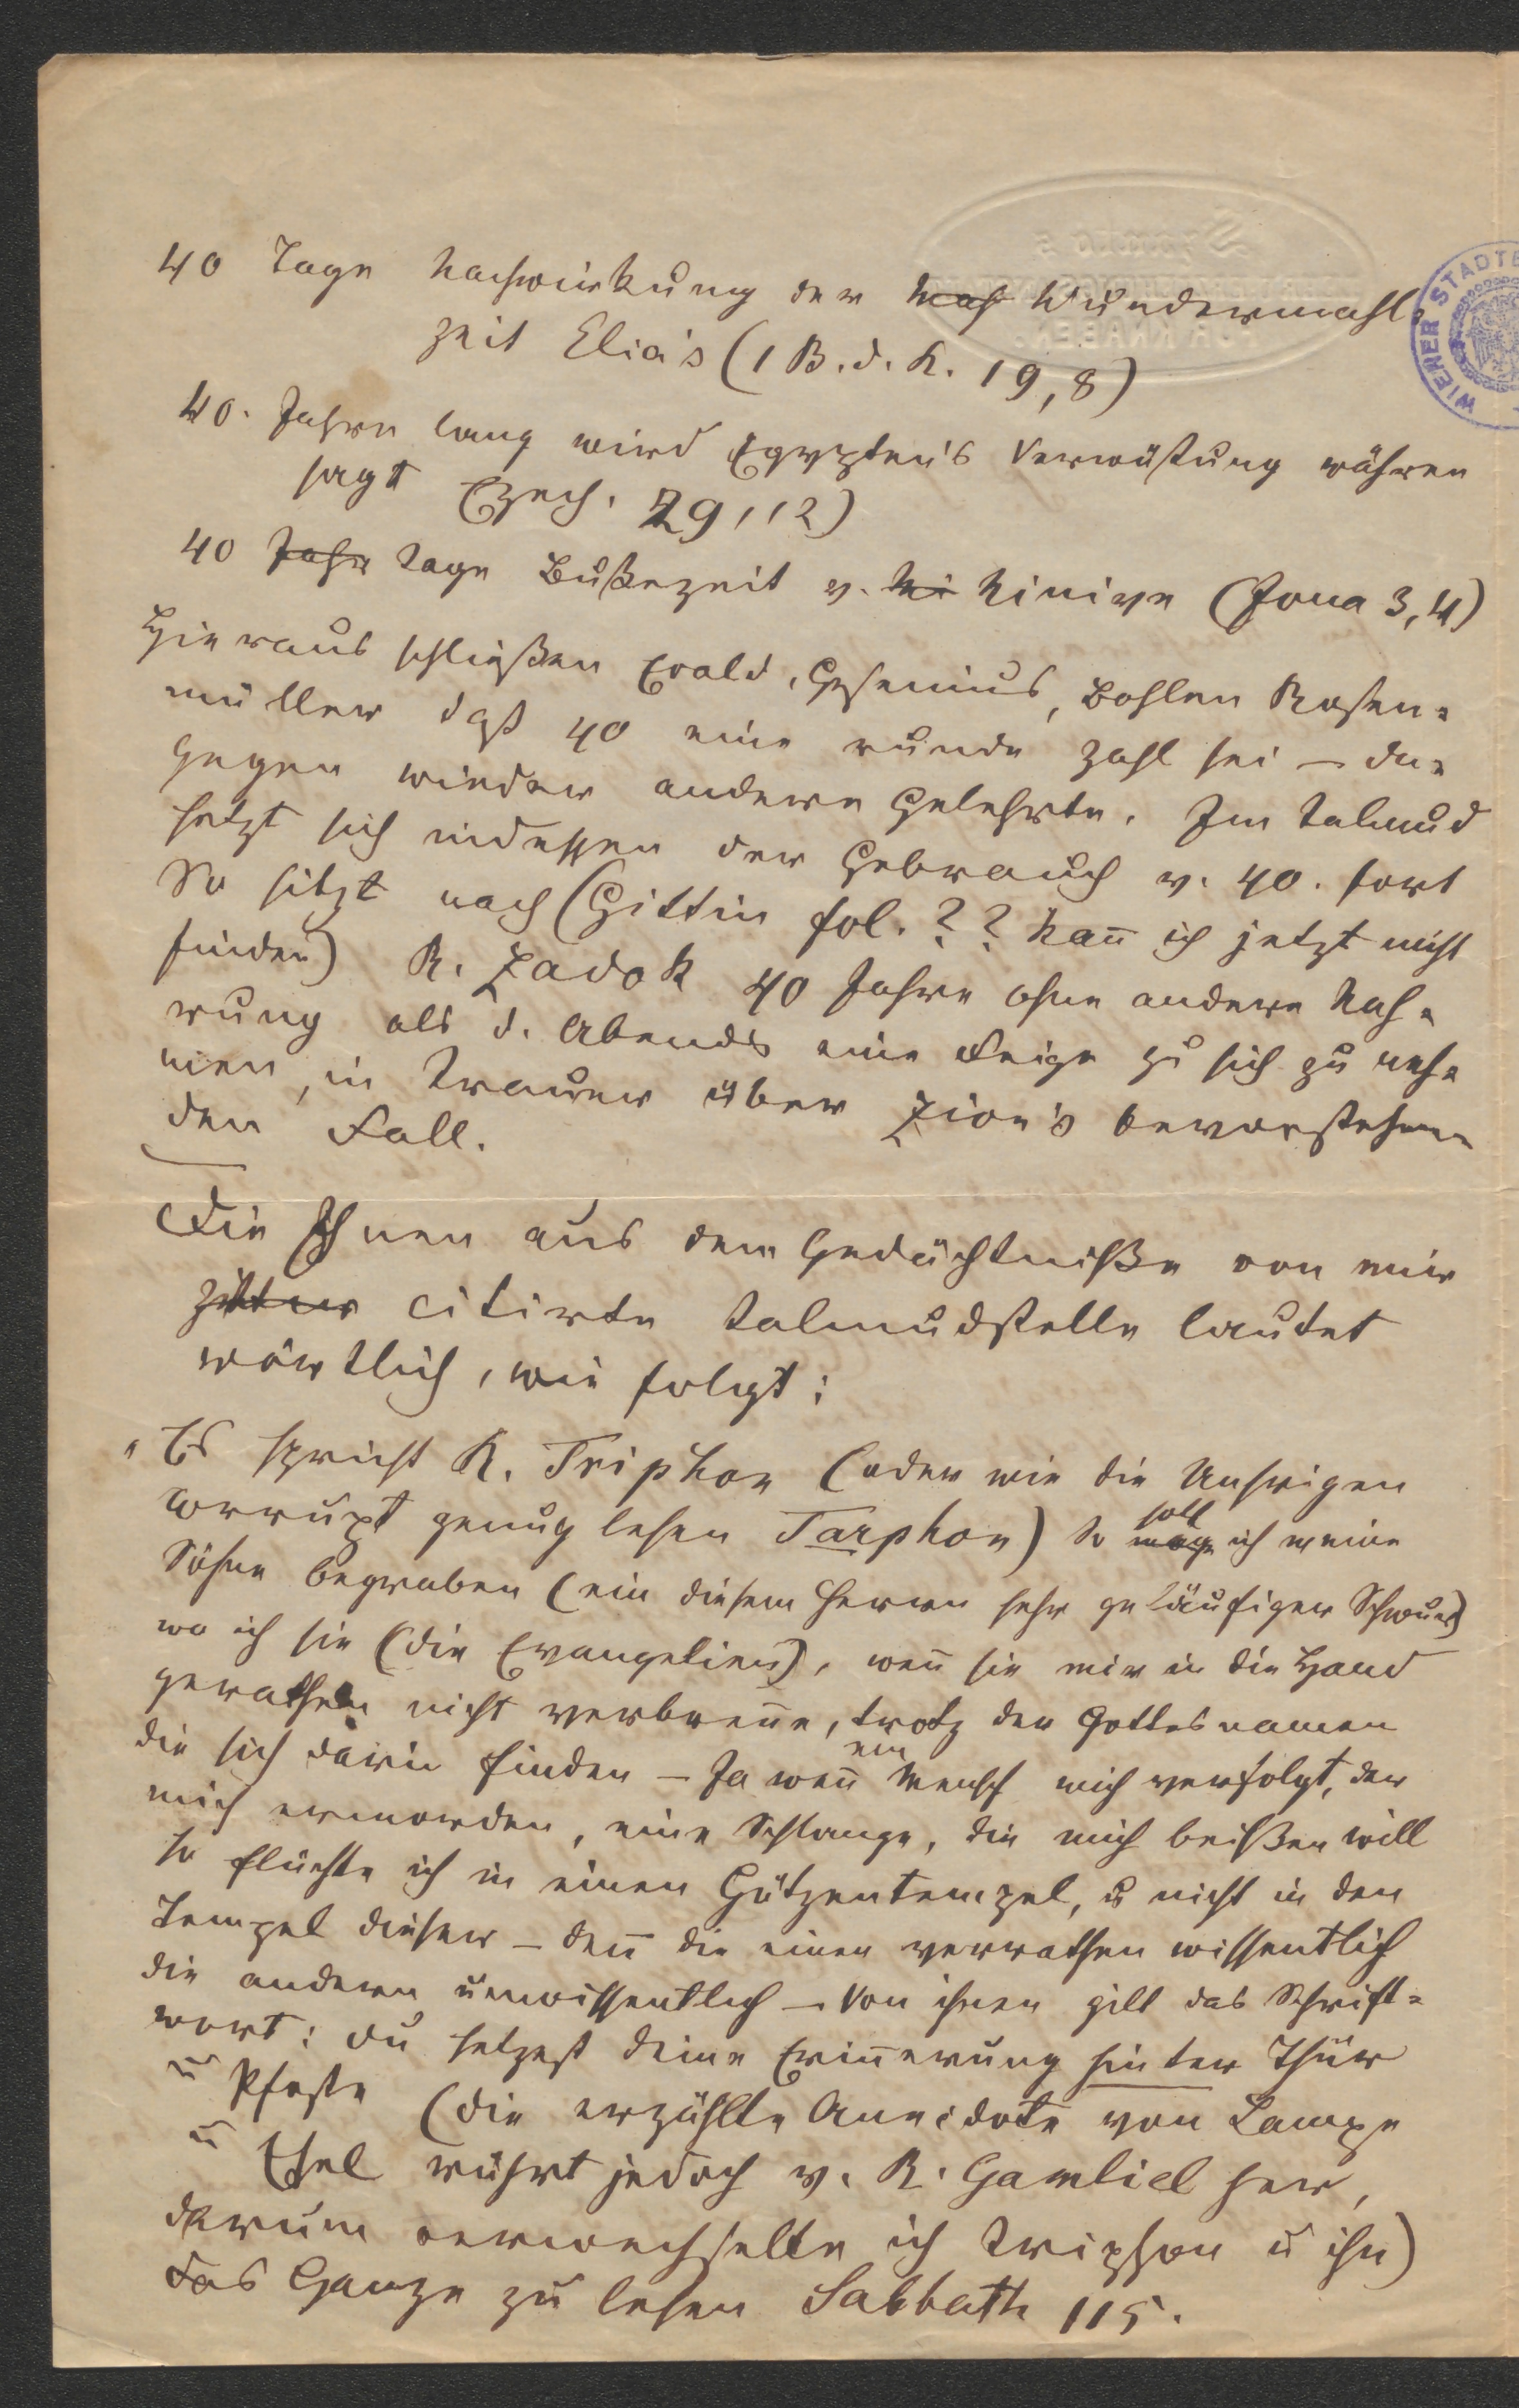 40 Tage Nachwirkung der Nach Wundermahl-
zeit Elia's (1 B. d. K. 19,8)
40. Jahre lang wird Egypten's Verwüstung währen
sagt Ezech. 29,12)
40 Jahr Tage Bußezeit v. Ni Ninive (Jona 3,4)
Hieraus schließen Ewald, Gesenius, Bohlen Rosen-
müller daß 40 eine runde Zahl sei – da-
gegen wieder andere Gelehrte. Im Talmud
setzt sich indessen der Gebrauch v. 40. fort
So sitzt nach (Gittin fol. ?? kan̄ ich jetzt nicht
finden) R. Zadok 40 Jahre ohne andere Nah-
rung als d. Abends eine Feige zu sich zu neh-
men, in Trauer über Zion's bevorstehen-
den Fall.
Die Ihnen aus dem Gedächtniße von mir
citirte Talmudstelle lautet
wörtlich, wie folgt:
"Es spricht R. Triphon (oder wie die Unsrigen
corrupt genug lesen Tarphon) so soll
möge ich meine
Söhne begraben (ein diesem Herrn sehr geläufiger Schwur)
wo ich sie (die Evangelien), wen̄ sie mir in die Hand
gerathen nicht verbren̄e, trotz der Gottesnamen
die sich darin finden – Ja wen̄ ein Mensch mich verfolgt, der
mich ermorden, eine Schlange, die mich beißen will
so flüchte ich in einen Götzentempel, u nicht in den
Tempel dieser – den̄ die einen verrathen wissentlich
die andern unwissentlich – Von ihnen gilt das Schrift-
wort: du setzest deine Erin̄erung hinter Thür
u Pfoste (die erzählte Anecdote von Lampe
u Esel rührt jedoch v. R. Gamliel her,
darum verwechselte ich Triphon u ihn)
das Ganze zu lesen Sabbath 115.
WIENER STADTB